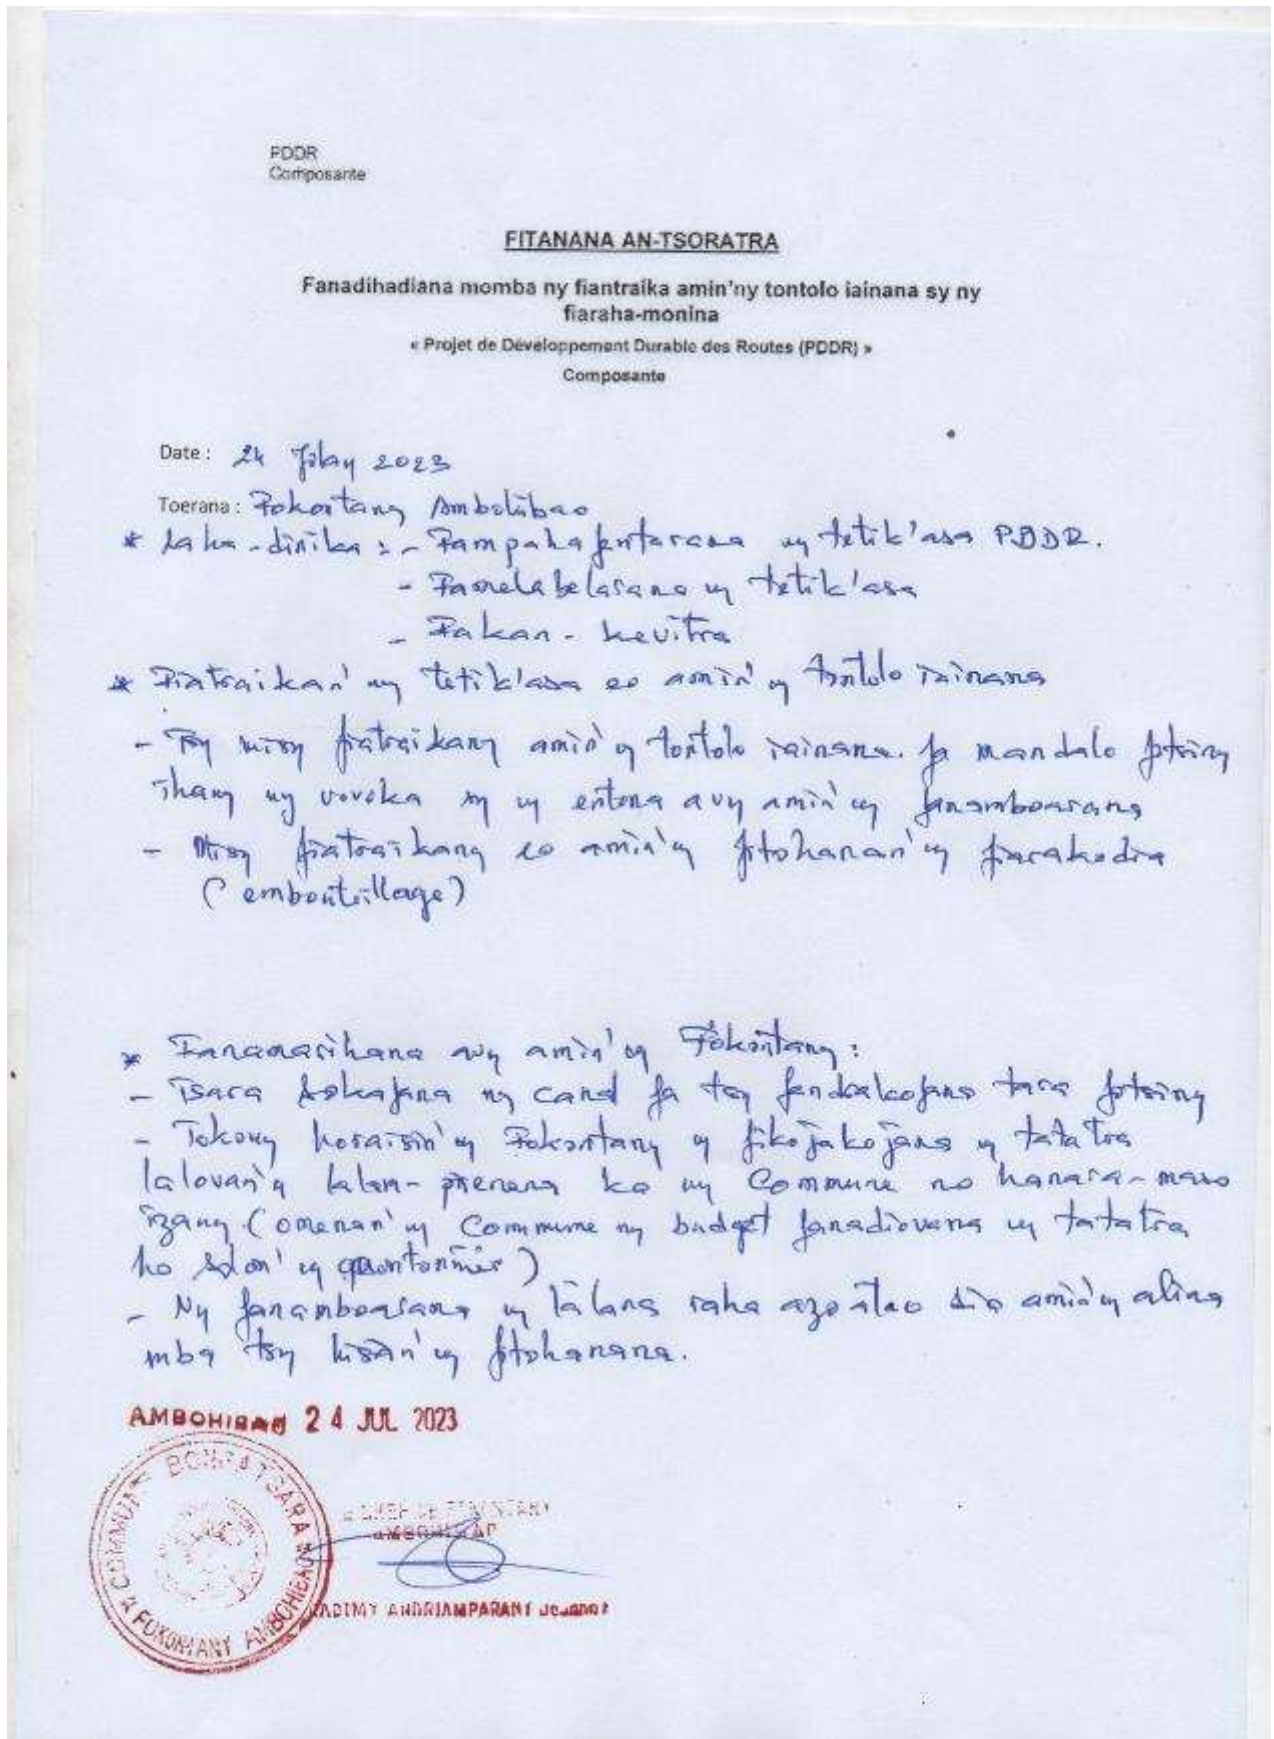 PDDR
Composante
FITANANA AN-TSORATRA
Fanadihadiana momba ny fiantraika amin'ny tontolo iainana sy ny
fiaraha-monina
« Projet de Développement Durable des Routes (PDDR) »
Composante
Date : 24 Jolay 2023
Toerana : Fokontany Ambohibao
* Laha-dinika : - Fampahafantarana ny tetik'asa PDDR.
- Famelabelarana ny tetik'asa
- Fakan-kevitra
* Fiatraikan'ny tetik'asa eo amin'ny tontolo iainana
- Tsy misy fiatraikany amin'ny tontolo iainana fa mandalo fotsiny
ihany ny vovoka sy ny entona avy amin'ny fanamboarana
- Misy fiatraikany eo amin'ny fitohanan'ny fiarakodia
(embouteillage)
* Fanamarihana avy amin'ny Fokontany :
- Tsara ny canal fa tsy fotsiny
- Tokony horaisin'ny Fokontany ny fikojakojana ny tatatra
lalovan'ny lalam-pirenena ka ny Commune no hanara-maso
izany (omenan'ny Commune ny budget fanadiovana ny tatatra
ho ny )
- Ny fanamboarana ny lalana raha azo atao dia amin'ny alina
mba tsy hisian'ny fitohanana.
AMBOHIBAO 24 JUL 2023
COMMUNE TSARA
FOKONTANY AMBOHIBAO
CHEF DE FOKONTANY
AMBOHIBAO
ANDRIAMPARANY